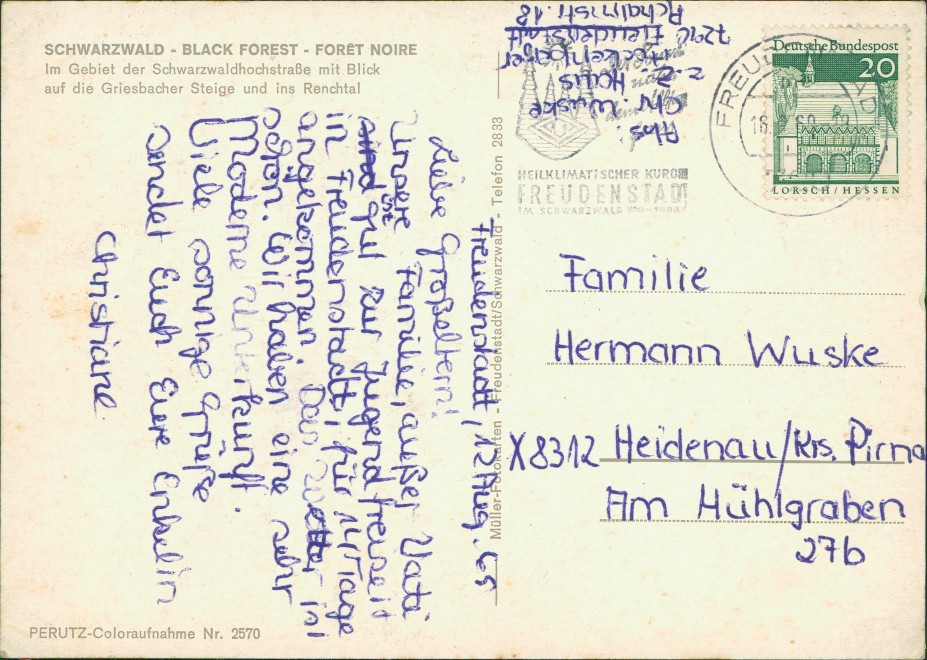 SCHWARZWALD - BLACK FOREST - FORÊT NOIRE
Im Gebiet der Schwarzwaldhochstraße mit Blick
auf die Griesbacher Steige und ins Renchtal
Freudenstadt, 12 Aug. 69
Liebe Großeltern!
Unsere Familie, außer Vati
ist gut zur Jugendfreizeit
in Freudenstadt, für 14 Tage
angekommen. Das Wetter ist
schön. Wir haben eine sehr
Moderne Unterkunft.
Viele sonnige Grüße
sendet Euch Eure Enkelin
Christiane
PERUTZ-Coloraufnahme Nr. 2570
Müller-Fotokarten - Freudenstadt/Schwarzwald - Telefon 2833
Abs:
Chr. Wuske
z. Z. Haus
7290 Freudenstadt
Deutsche Bundespost
20
LORSCH/HESSEN
HEILKLIMATISCHER KURORT
FREUDENSTADT
IM SCHWARZWALD
Familie
Hermann Wuske
X8312 Heidenau/Krs. Pirna
Am Mühlgraben
27b